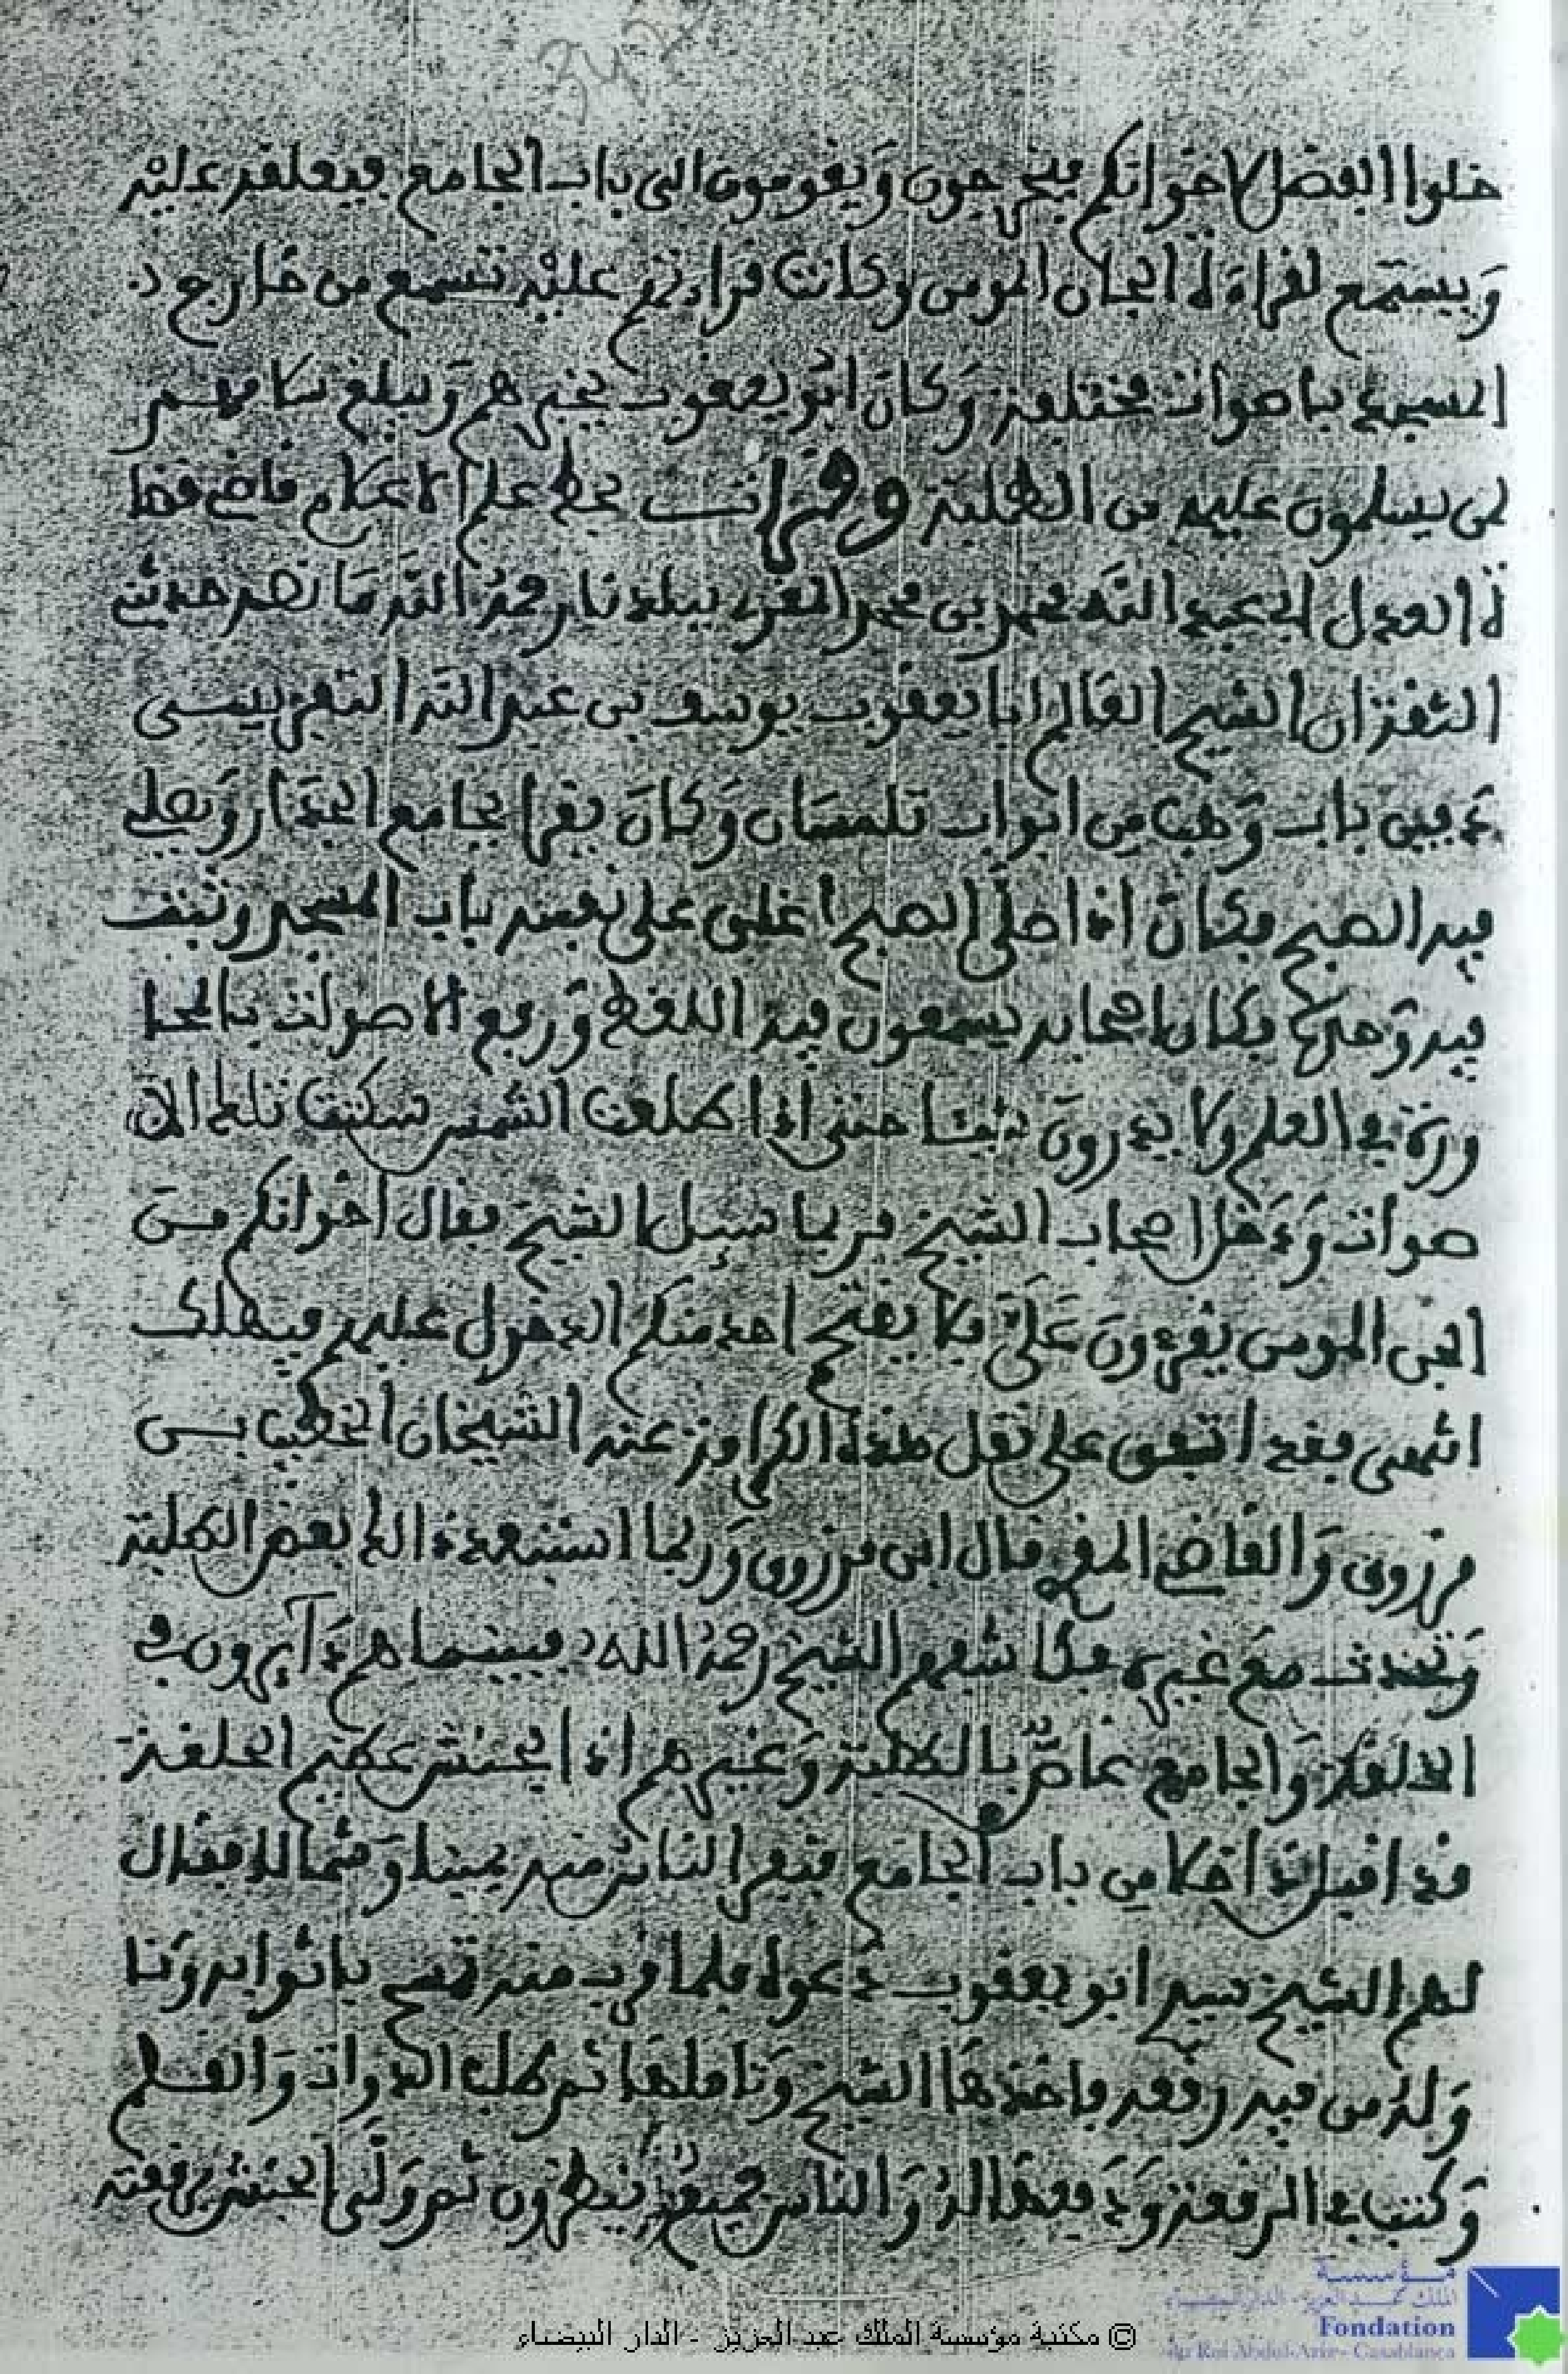 خلوا الفضل لاخوانكم فيخرجون ويقومون الى باب الجامع فيغلقه عليه
ويستمع لقراءة الجان المومن وكانت قراءتهم عليه تسمع من خارج
المسجد باصوات مختلفة وكان ابو يعقوب يخبرهم ويبلغ سلامهم
لمن يسلمون عليه من الطلبة وقرات بخط علم الاعلام قاضي قضا
ة العدل ابي عبد الله محمد بن محمد المقري ببلدنا رحمه الله ما نصه حدثني
الثقة ان الشيخ العالم ابا يعقوب يوسف بن عبد الله التفريسي
دفين باب وهب من ابواب تلمسان وكان يقرا بجامع الجدار ويصلي
فيه الصبح فكان اذا صلى الصبح اغلق على نفسه باب المسجد وتبقف
فيه وحده فكان اصحابه يسمعون فيه اللغط ورفع الاصوات بالمحا
ورة في العلم ولا يدرون شيئا حتى اذا طلعت الشمس سكتت تلك الا
صوات ودخل اصحاب الشيخ فربما سيل الشيخ فقال اخوانكم من
الجن المومن يقرءون علي فلا يفتح احد منكم الدخول عليهم فيهلك
انتهى فقد اتفق على نقل هذه الكرامة عنه الشيخان الخطيب بن
مرزوق والقاضي المقري قال ابن مرزوق وربما استبعد ذالك بعض الطلبة
وتحدث مع غيره فكاشفهم الشيخ رحمه الله فبينما هم دايرون في
الحلقة والجامع غاص بالطلبة وغيرهم اذا بحنش عظيم الحلقة
قد اقبل داخلا من باب الجامع ففر الناس منه يمينا وشمالا فقال
لهم الشيخ سيدي ابو يعقوب دعوه فلما قرب منه فسح باثوابه ونا
وله من فيه رقعة فاخذها الشيخ وتاملها ثم طلب الدوات والقلم
وكتب في الرقعة ودفعها اليه والناس جميعهم ينظرون ثم ولى الحنش برقعته
© مكتبة مؤسسة الملك عبد العزيز - الدار البيضاء
مؤسسة
الملك عبد العزيز - الدار البيضاء
Fondation
du Roi Abdul-Aziz - Casablanca